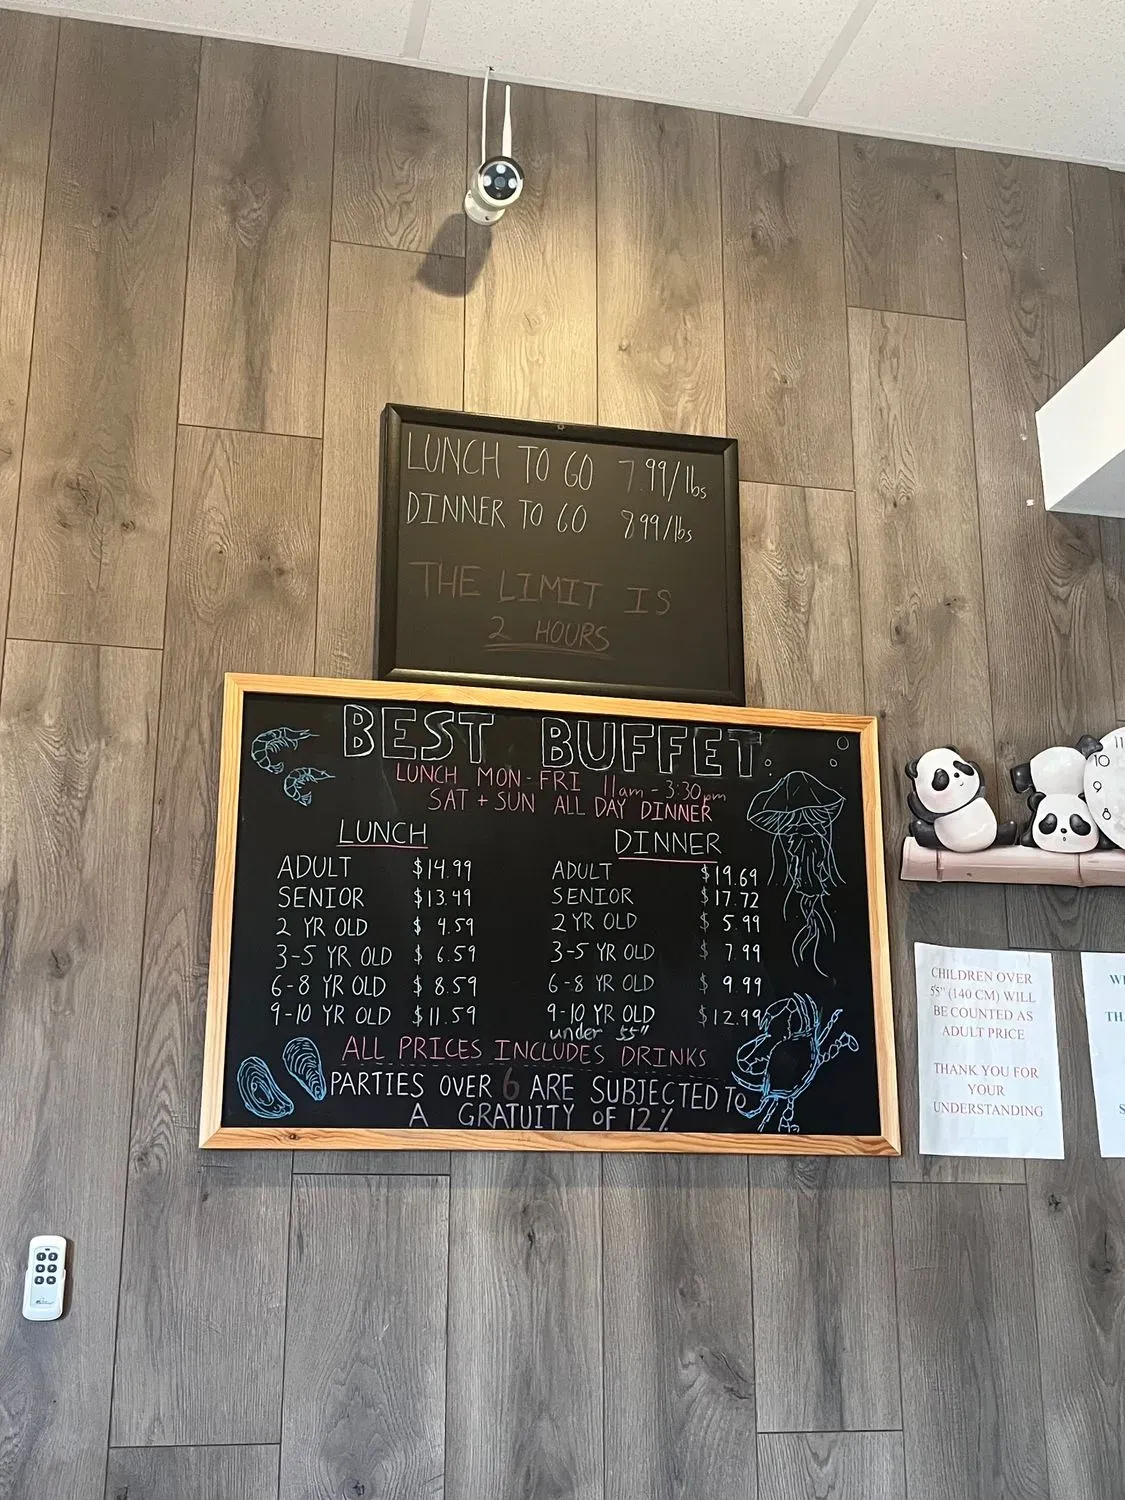 LUNCH TO GO 7.99/lbs
DINNER TO GO 8.99/lbs
THE LIMIT IS
2 HOURS
BEST BUFFET.
LUNCH MON-FRI 11am-3:30pm
SAT + SUN ALL DAY DINNER
LUNCH
ADULT $14.99
SENIOR $13.49
2 YR OLD $ 4.59
3-5 YR OLD $ 6.59
6-8 YR OLD $ 8.59
9-10 YR OLD $11.59
DINNER
ADULT $19.69
SENIOR $17.72
2 YR OLD $ 5.99
3-5 YR OLD $ 7.99
6-8 YR OLD $ 9.99
9-10 YR OLD $12.99
under 55"
ALL PRICES INCLUDES DRINKS
PARTIES OVER 6 ARE SUBJECTED To
A GRATUITY oF 12%
10
9
8
CHILDREN OVER
55" (140 CM) WILL
BE COUNTED AS
ADULT PRICE
THANK YOU FOR
YOUR
UNDERSTANDING